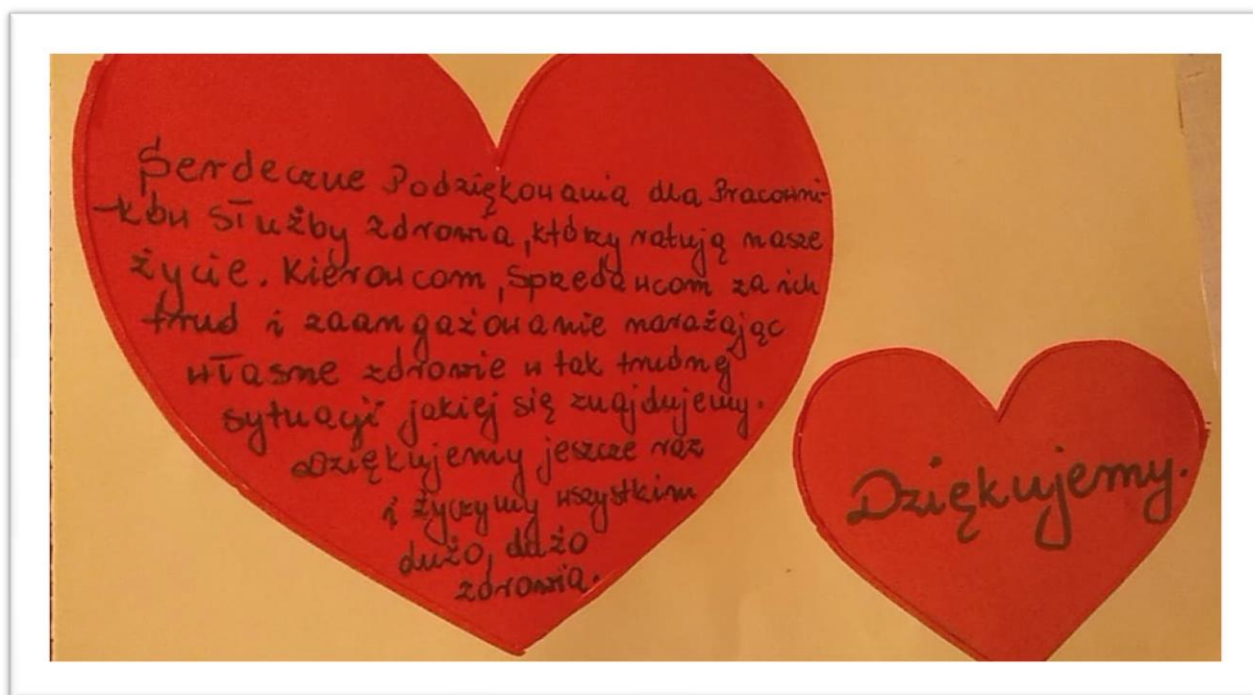 Serdeczne Podziękowania dla Pracowni-
-ków Służby zdrowia, którzy ratują nasze
życie. Kierowcom, Spzedawcom za ich
trud i zaangażowanie narażając
własne zdrowie w tak trudnej
sytuacji jakiej się znajdujemy.
Dziękujemy jeszcze raz
i życzymy wszystkim
dużo, dużo
zdrowia.
Dziękujemy.